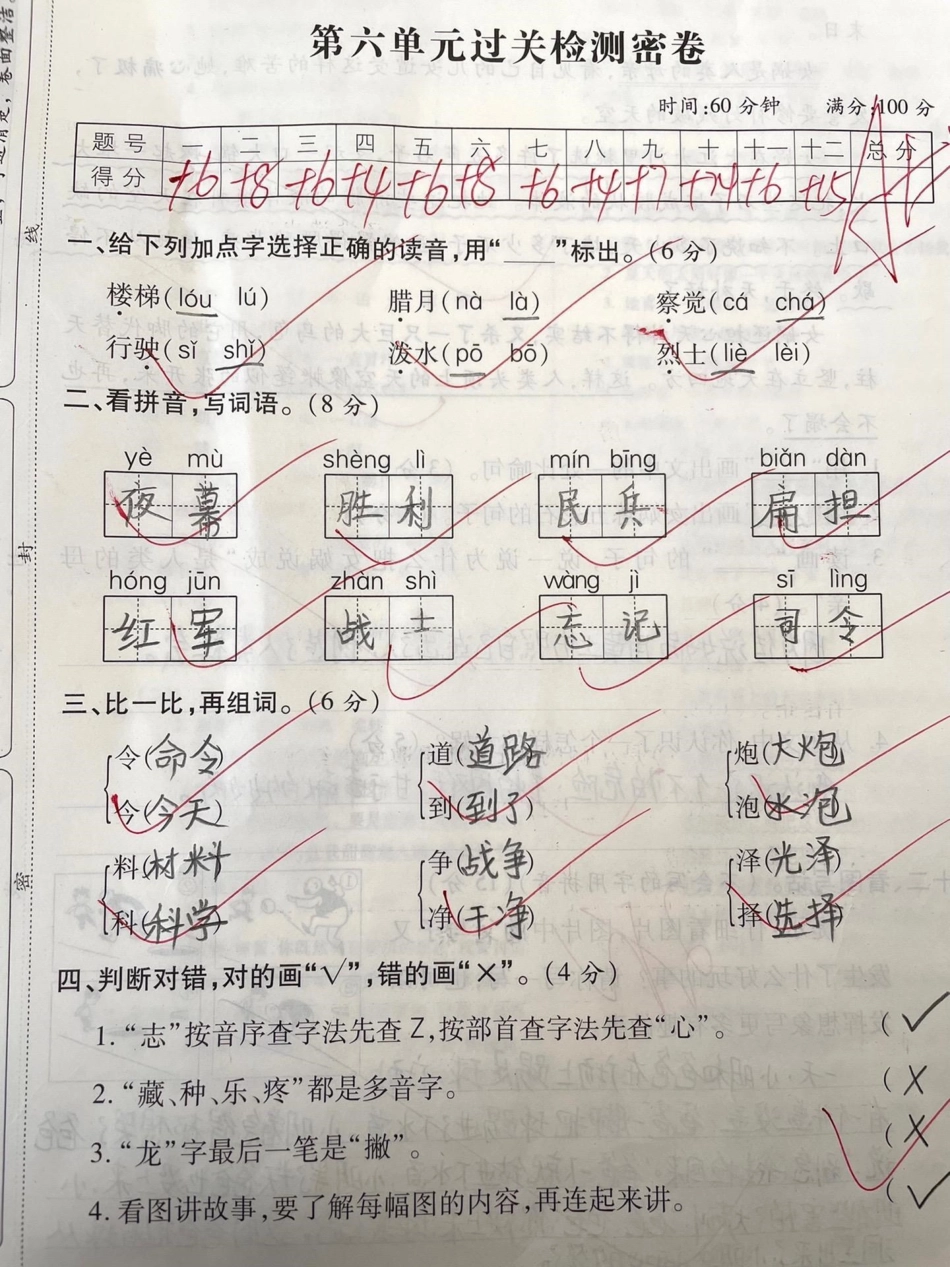 第六单元过关检测密卷
时间:60分钟 满分:100分
题号 一 二 三 四 五 六 七 八 九 十 十一 十二 总分
得分 +6 +8 +6 +4 +6 +8 +6 +4 +7 +24 +6 +15
一、给下列加点字选择正确的读音,用“____”标出。(6分)
楼梯(lóu lú) 腊月(nà là) 察觉(cá chá)
行驶(sǐ shǐ) 泼水(pō bō) 烈士(liè lèi)
二、看拼音,写词语。(8分)
yè mù shèng lì mín bīng biǎn dàn
夜幕 胜利 民兵 扁担
hóng jūn zhàn shì wàng jì sī lìng
红军 战士 忘记 司令
三、比一比,再组词。(6分)
令(命令) 道(道路) 炮(大炮)
今(今天) 到(到了) 泡(水泡)
料(材料) 争(战争) 泽(光泽)
科(科学) 净(干净) 择(选择)
四、判断对错,对的画“√”,错的画“×”。(4分)
1. “志”按音序查字法先查Z,按部首查字法先查“心”。 (√
2. “藏、种、乐、疼”都是多音字。 (×
3. “龙”字最后一笔是“撇”。 (×
4. 看图讲故事,要了解每幅图的内容,再连起来讲。 (√
线
封
密